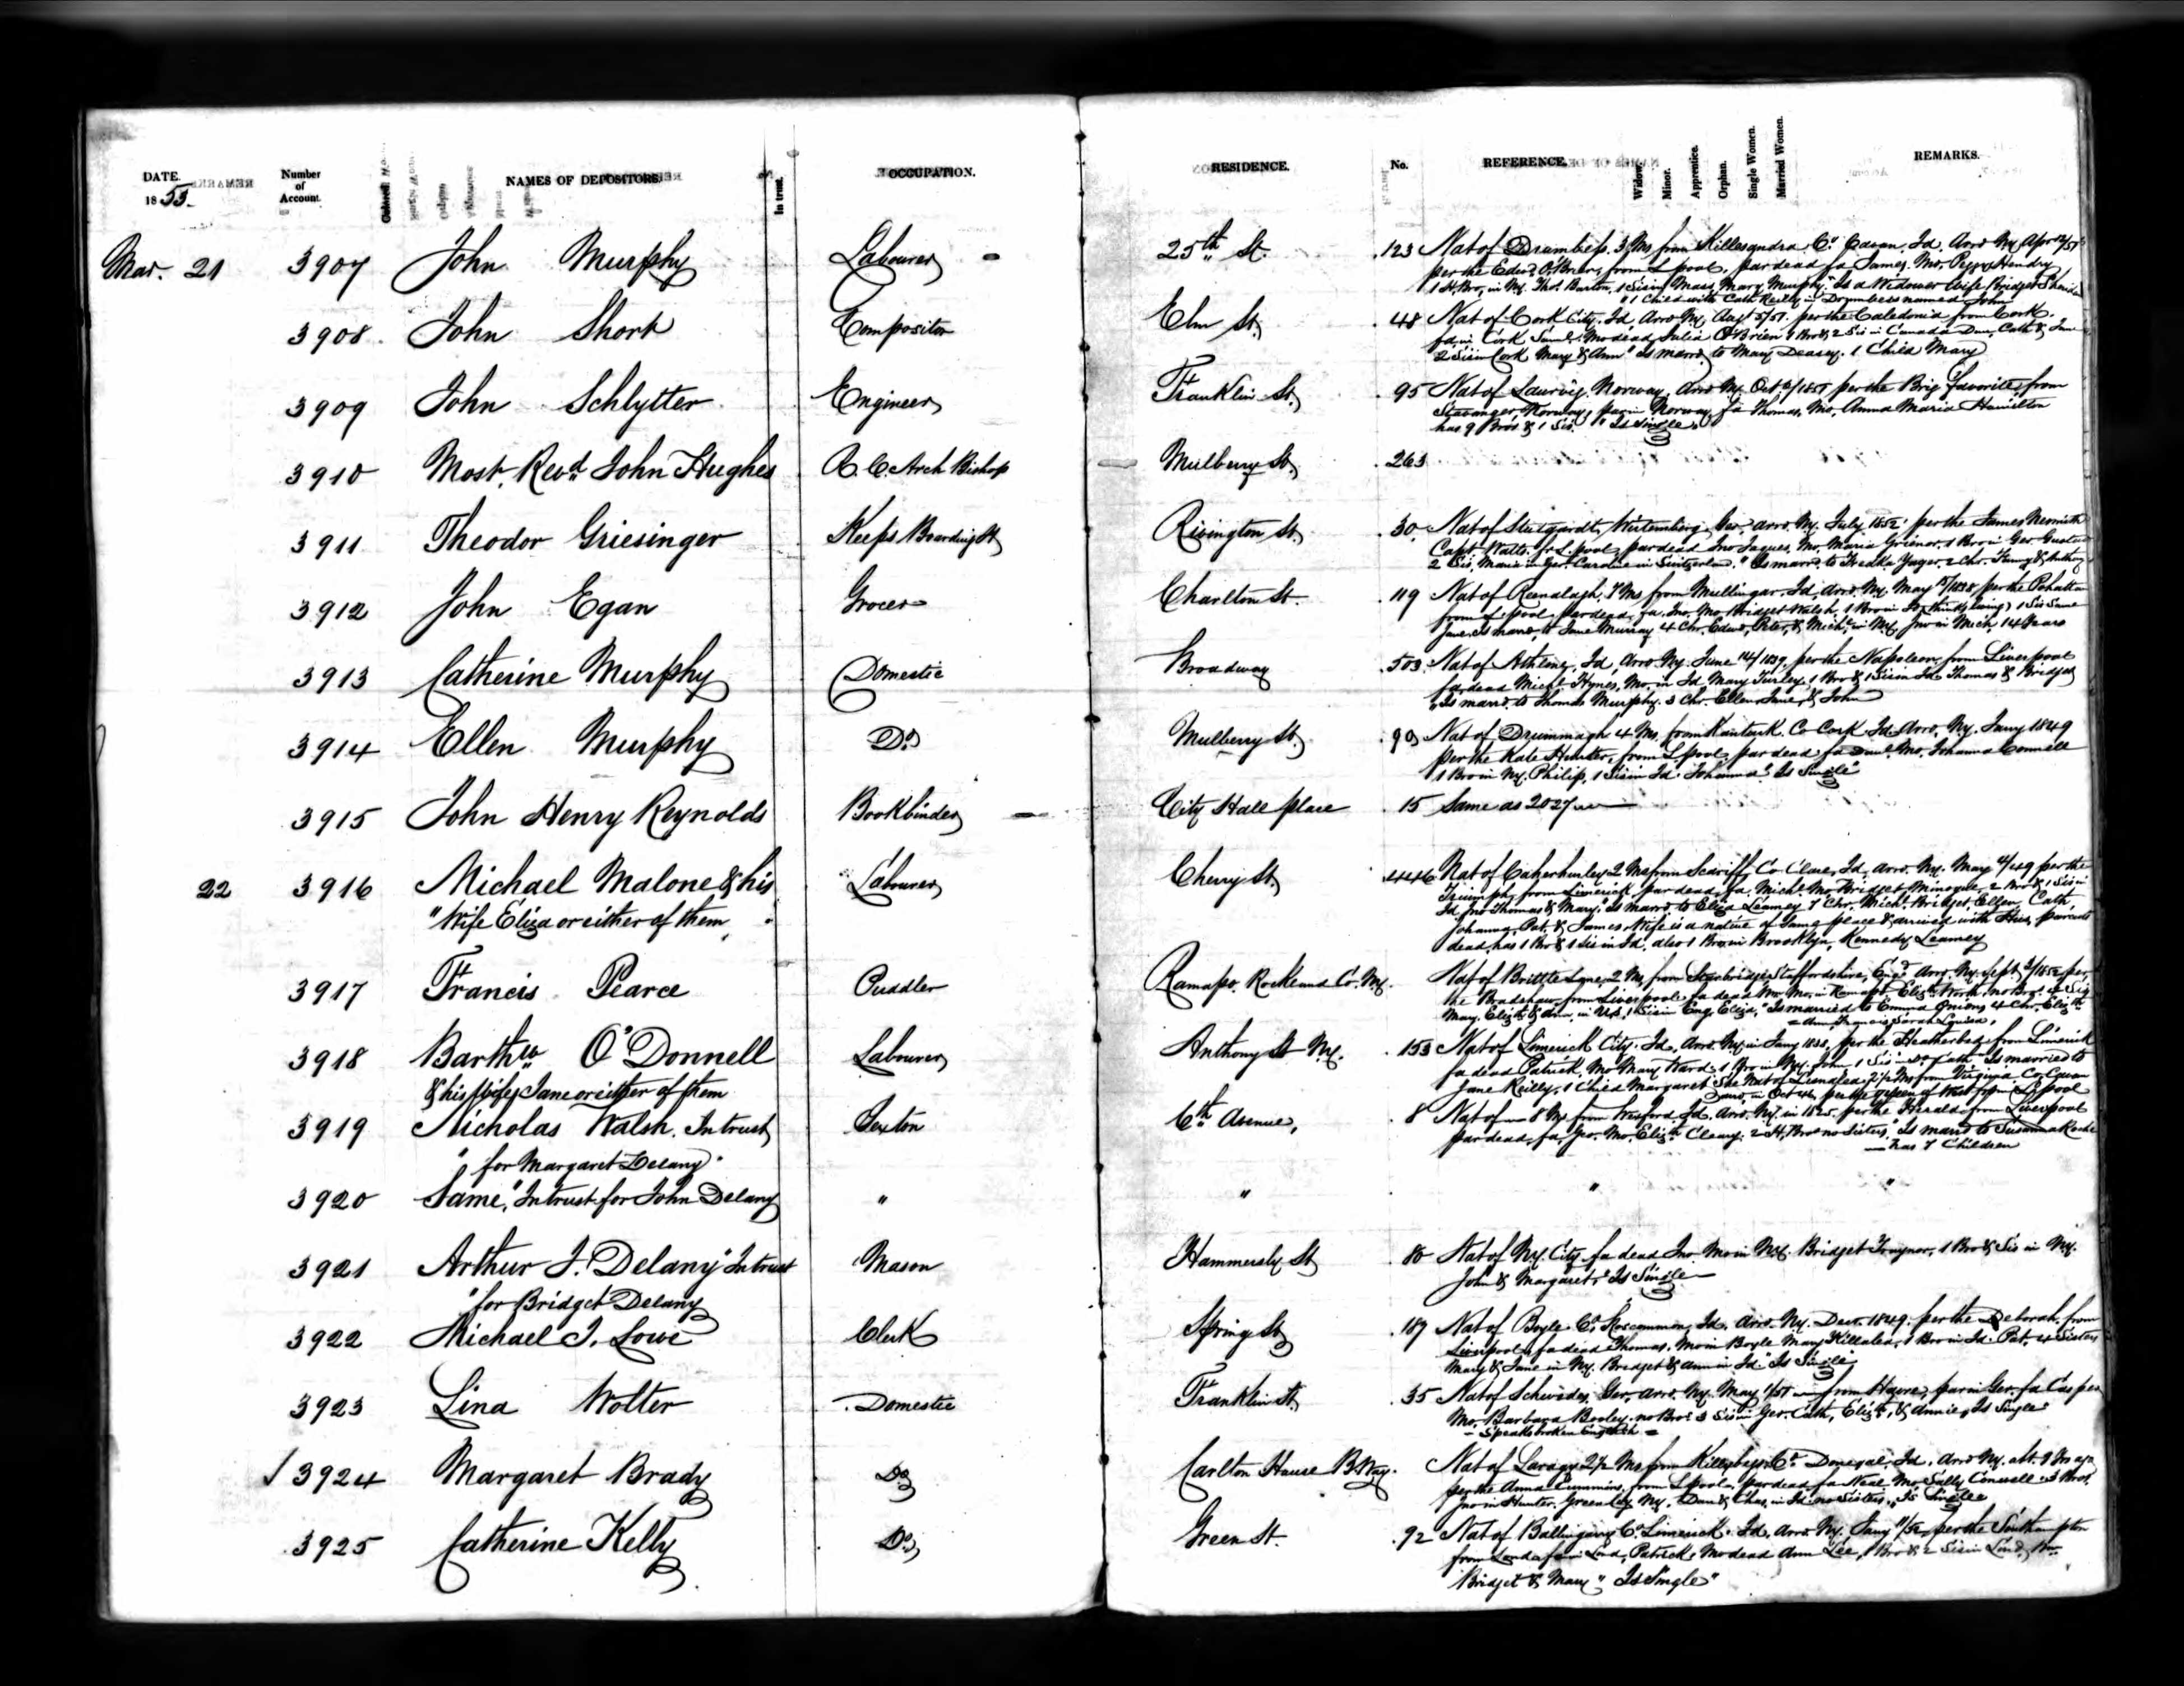 DATE.
1855.
Number of Account.
NAMES OF DEPOSITORS.
In trust.
OCCUPATION.
RESIDENCE.
No.
REFERENCE.
Widow.
Minor.
Apprentice.
Orphan.
Single Women.
Married Women.
REMARKS.
Mar. 21 3907 John Murphy Labourer 25th St. 123 Nat of 3 Ms from Killesandra Co. Cavan, Id, Arrd Ny Apr
per the Edwd O'Brien, from L'pool, par dead fa James. Mo. Peggy Hendry
1 H. Bro, in Ny. Thos. Burton, 1 Sis in Mass, Mary Murphy. "Is a Widower Wife Bridget Sheridan
"1 Child with Cath Reilly in named John"
3908 John Short Compositor Elm St. 48 Nat of Cork City. Id, Arrd Ny Augt per the Caledonia from Cork.
fa in Cork Mo dead Julia O'Brien 1 Bro & 2 Sis in Canada Cath & Jane
2 Sis in Cork Mary & Ann" Is marrd to Mary Deasey. 1 Child Mary
3909 John Schlytter Engineer Franklin St. 95 Nat of Laurvig. Norway, Arrd Ny. Oct per the Brig Favorite, from
Stavanger, Norway, par in Norway, fa Thomas, Mo, Anna Maria Hamilton
has 9 Bros & 1 Sis. "Is Single"
3910 Most. Revd. John Hughes R. C. Arch Bishop Mulberry St. 263
3911 Theodor Griesinger Keeps Boarding H Rivington St. 30 Nat of Stutgardt, Wirtemberg, Ger, arrd. Ny. July 1852 per the James Nesmith
Capt Watts. fr L.pool, par dead Jno Jaques, Mo, Maria 1 Bro in Ger. Gustav
2 Sis, Maria in Ger. Caroline in Switzerland. "Is marrd to Yager. 2 Chr. Fanny & Anthony
3912 John Egan Grocer Charlton St. 119 Nat of 7 Ms from Mullingar. Id, Arrd. Ny. May per the
from L'pool. par dead, fa. Jno. Mo, Bridget Walsh, 1 Bro in 1 Sis
Jane. Is marrd, to Jane Murray 4 Chr. Edwd, Peter, & Michl, in Ny. Jno in Mich, 14 Years
3913 Catherine Murphy Domestic Broadway 503 Nat of Athlone, Id, Arrd. Ny. June 14/1839, per the Napoleon from Liverpool
fa dead Michl. Hynes, Mo, in Id. Mary Turley 1 Bro & 1 Sis in Id. Thomas & Bridget
"Is marrd. to Thomas Murphy. 3 Chr. Ellen, Jane, & John
3914 Ellen Murphy Do Mulberry St. Nat of Drummagh 4 Ms. from Kanturk. Co Cork. Id. Arrd. Ny. Jany 1849
per the Kate Hunter, from L'pool, par dead, fa Danl. Mo, Johanna Connell
1 Bro in Ny. Philip, 1 Sis in Id. Johanna." Is Single"
3915 John Henry Reynolds Bookbinder City Hall place 15 Same as 2027
22 3916 Michael Malone & his Labourer Cherry St. 446 Nat of 2 Ms from Scariff, Co Clare, Id, arrd. Ny. May per the
"Wife Eliza or either of them" Triumph, from Limerick, par dead, fa. Michl. Mo Bridget Minogue, 2 Bro & 1 Sis in
Id, Jno Thomas & Mary." Is marrd to Eliza Leamey 7 Chr. Michl. Bridget, Ellen, Cath,
Johanna, Pat, & James. Wife is a native of Same place & arrived with Hus, parents
dead, has 1 Bro & 1 Sis in Id, also 1 Bro in Brooklyn, Kennedy Leamey
3917 Francis Pearce Puddler Ramapo. Rockland Co. Ny. Nat of 2 Ms from Staffordshire, Engd. Arrd. Ny. Sept per
the Bradshaw, from Liverpool, fa dead Wm. Mo, in Ramapo. Elizth.
Mary, Elizth & Ann, in U.S. 1 Sis in Eng. Eliza," Is married to Emma 4 Chr. Elizth
Ann, Francis, Sarah Louisa.
3918 Barthw. O'Donnell Labourer Anthony St Ny. 153 Nat of Limerick City. Id, Arrd. Ny in Jany per the from Limerick
& his Wife, Jane or either of them fa dead Patrick, Mo Mary Ward. 1 Bro in Ny. John, 1 Sis Do Cath" Is married to
Jane Reilly, 1 Child Margaret. She Nat of 2½ Ms from Virginia Co. Cavan
arrd, in Oct per the Queen of West from L.pool
3919 Nicholas Walsh. In trust Sexton 6th Avenue, 8 Nat of 8 Ms from Wexford Id, Arrd. Ny. in per the Herald from Liverpool
"for Margaret Delany" par dead, fa, Mo, Elizth Cleary. 2 H. Bros no Sisters." Is marrd to Susanna
has 7 Children
3920 Same, "In trust for John Delany " " " "
3921 Arthur J. Delany "In trust Mason Hammersly St 80 Nat of Ny. City. fa dead Jno Mo in Ny. Bridget Traynor, 1 Bro & Sis in Ny.
"for Bridget Delany John & Margaret." Is Single
3922 Michael J. Lowe Clerk Spring St 187 Nat of Boyle Co. Roscommon, Id. Arrd. Ny. Decr. 1849. per the Deborah, from
Liverpool, fa dead Thomas, Mo in Boyle Mary 1 Bro in Id. Pat, 4 Sisters
Mary & Jane in Ny. Bridget & Ann in Id." Is Single"
3923 Lina Wolter Domestic Franklin St. 35 Nat of Ger, arrd. Ny. May from Havre, par in Ger. fa Casper
Mo, Barbara no Bros 3 Sis in Ger. Cath, Elizth, & Annie, Is Single"
Speaks broken English
3924 Margaret Brady Do Carlton House B.Way. Nat of 2½ Ms from Killybegs Co. Donegal, Id. Arrd Ny. abt. 9 Yrs ago
per the Anna from L'pool, par dead fa Neal, Mo, Sally 3 Bros.
Jno in Hunter. Green Co, Ny. Dan & Chas, in Id. no Sisters." Is Single
3925 Catherine Kelly Do Green St. 92 Nat of Ballingary Co Limerick. Id, Arrd. Ny. Jany per the Southampton
from Lond, Patrick, Mo dead Ann Lee, 1 Bro & 2 Sis in Lond,
Bridget & Mary " Is Single"